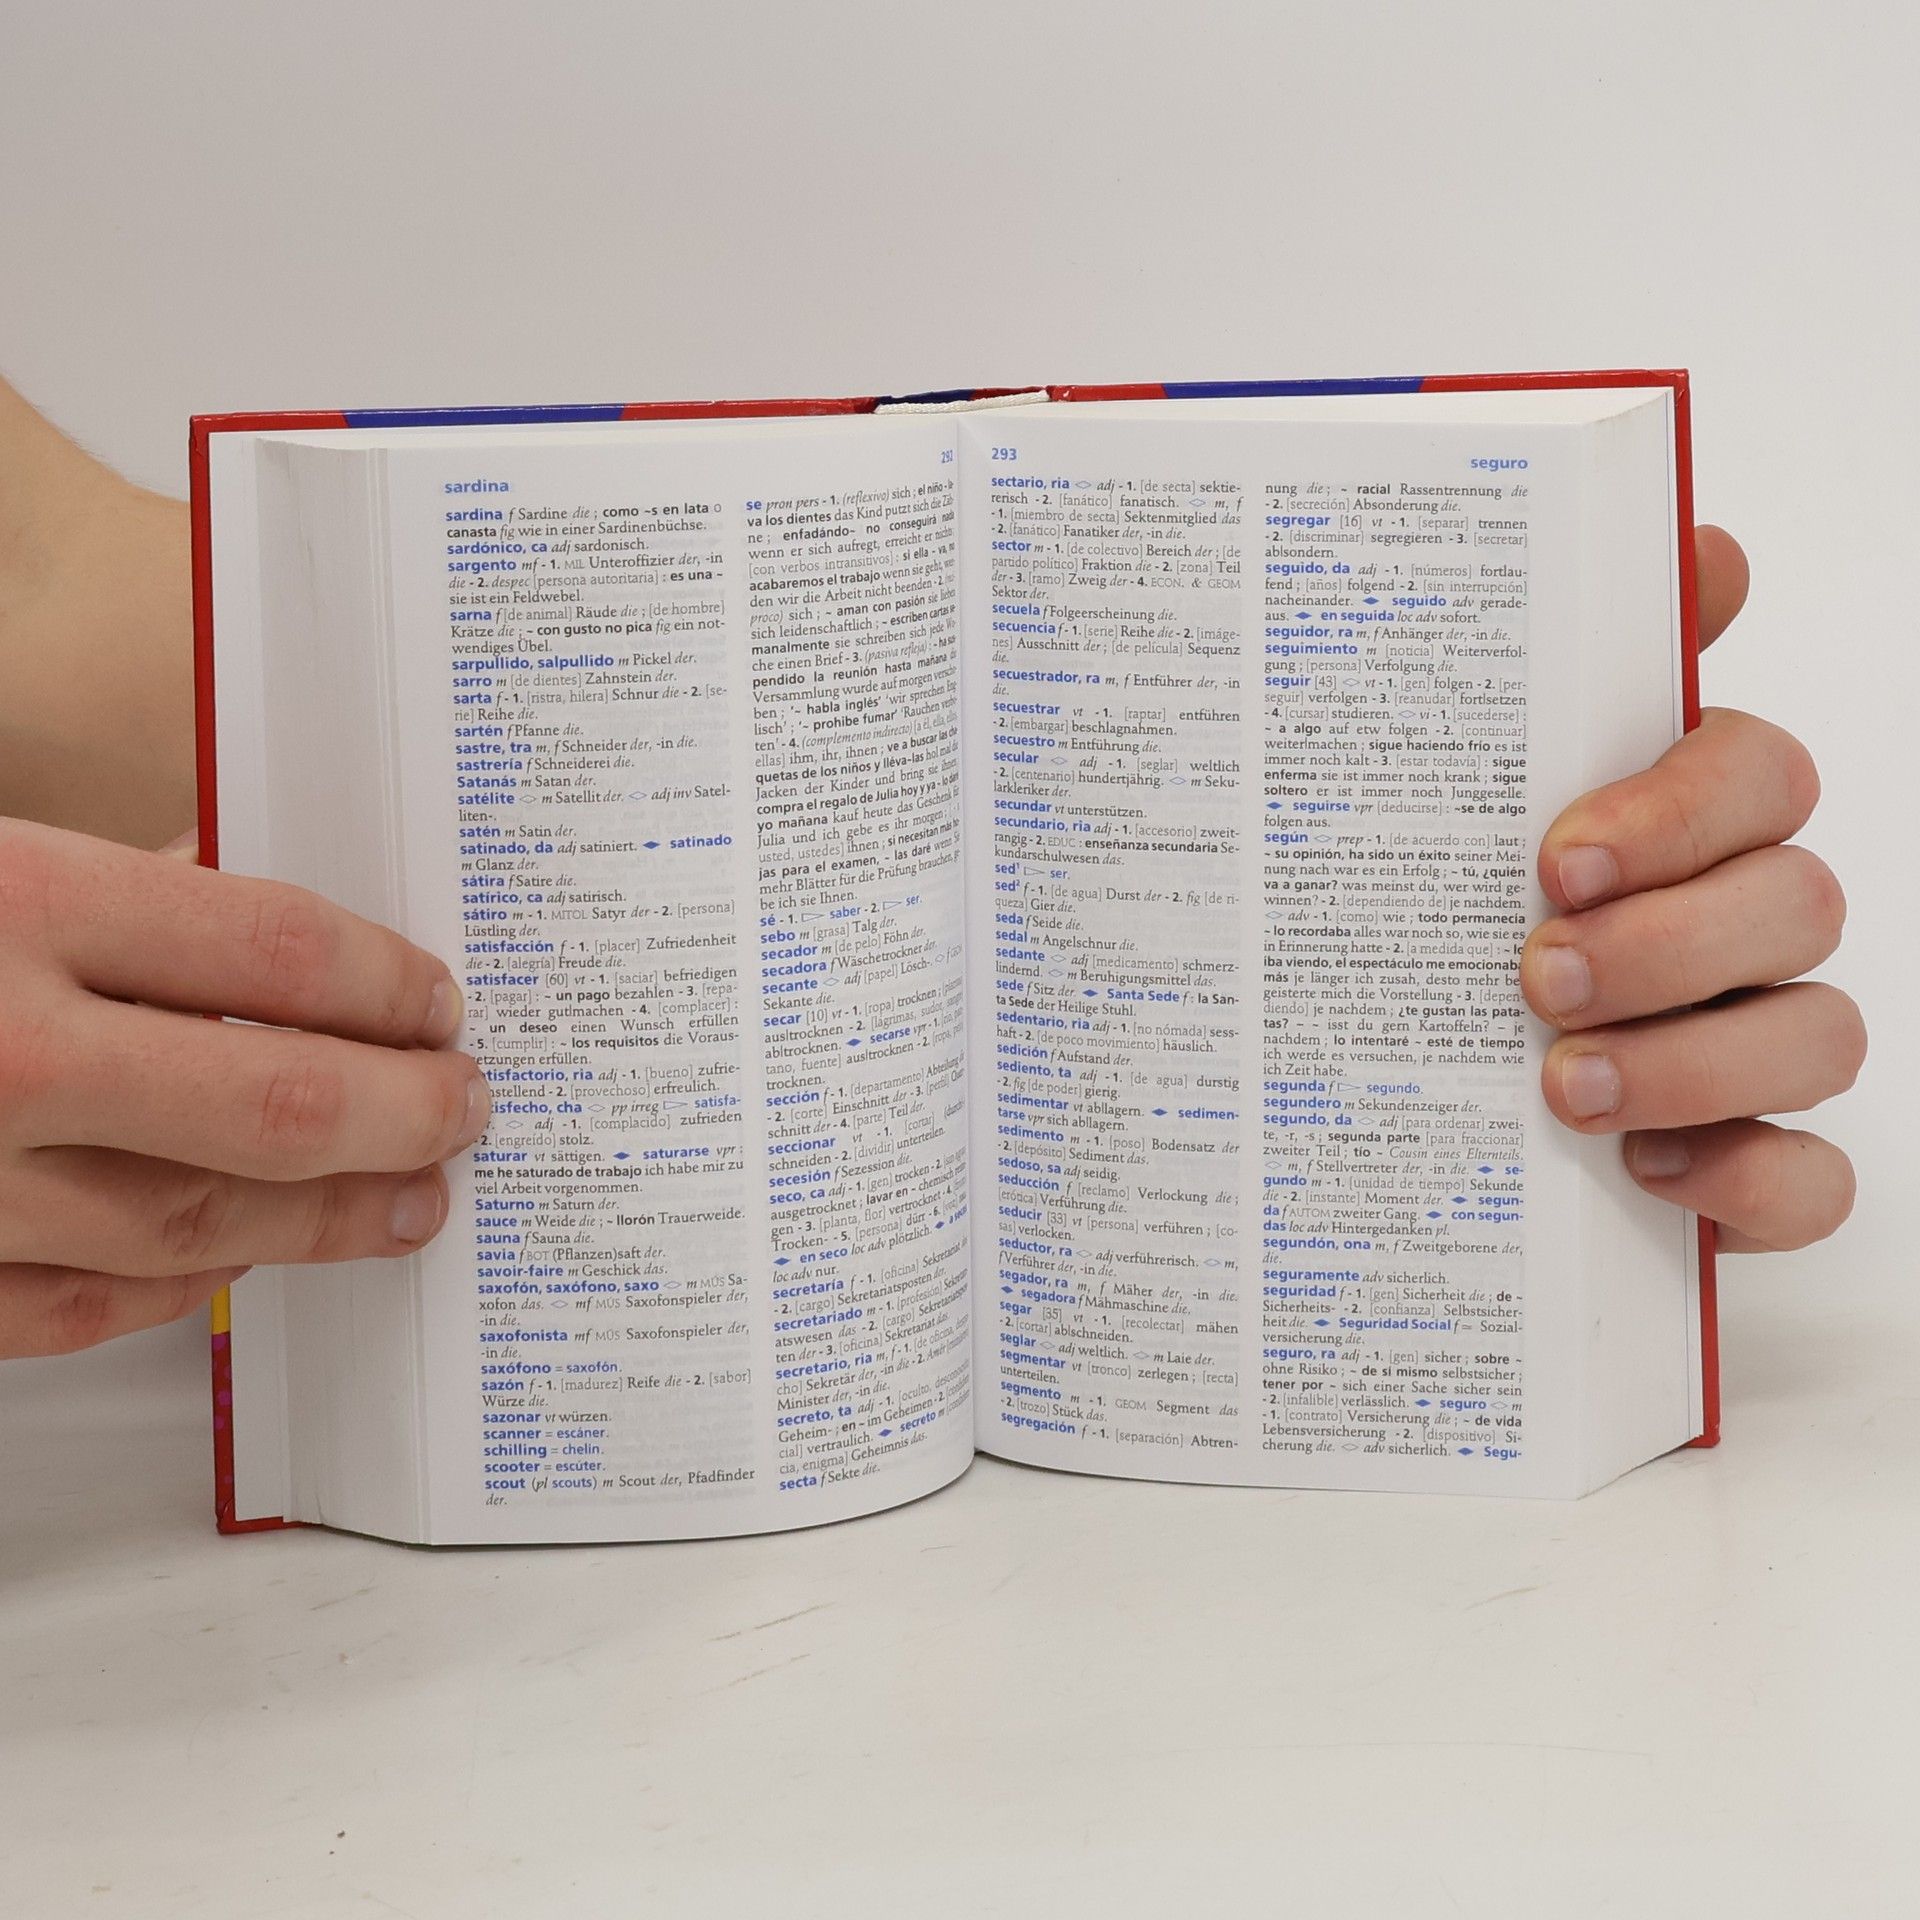 sardina
292
sardina f Sardine die ; como ~s en lata o
canasta fig wie in einer Sardinenbüchse.
sardónico, ca adj sardonisch.
sargento mf - 1. MIL Unteroffizier der, -in
die - 2. despec [persona autoritaria] : es una ~
sie ist ein Feldwebel.
sarna f [de animal] Räude die ; [de hombre]
Krätze die ; ~ con gusto no pica fig ein not-
wendiges Übel.
sarpullido, salpullido m Pickel der.
sarro m [de dientes] Zahnstein der.
sarta f - 1. [ristra, hilera] Schnur die - 2. [se-
rie] Reihe die.
sartén f Pfanne die.
sastre, tra m, f Schneider der, -in die.
sastrería f Schneiderei die.
Satanás m Satan der.
satélite <> m Satellit der. <> adj inv Satel-
liten-.
satén m Satin der.
satinado, da adj satiniert. ◆ satinado
m Glanz der.
sátira f Satire die.
satírico, ca adj satirisch.
sátiro m - 1. MITOL Satyr der - 2. [persona]
Lüstling der.
satisfacción f - 1. [placer] Zufriedenheit
die - 2. [alegría] Freude die.
satisfacer [60] vt - 1. [saciar] befriedigen
- 2. [pagar] : ~ un pago bezahlen - 3. [repa-
rar] wieder gutlmachen - 4. [complacer] :
~ un deseo einen Wunsch erfüllen
- 5. [cumplir] : ~ los requisitos die Voraus-
etzungen erfüllen.
tisfactorio, ria adj - 1. [bueno] zufrie-
nstellend - 2. [provechoso] erfreulich.
isfecho, cha <> pp irreg ▷ satisfa-
r. <> adj - 1. [complacido] zufrieden
- 2. [engreído] stolz.
saturar vt sättigen. ◆ saturarse vpr :
me he saturado de trabajo ich habe mir zu
viel Arbeit vorgenommen.
Saturno m Saturn der.
sauce m Weide die ; ~ llorón Trauerweide.
sauna f Sauna die.
savia f BOT (Pflanzen)saft der.
savoir-faire m Geschick das.
saxofón, saxófono, saxo <> m MÚS Sa-
xofon das. <> mf MÚS Saxofonspieler der,
-in die.
saxofonista mf MÚS Saxofonspieler der,
-in die.
saxófono = saxofón.
sazón f - 1. [madurez] Reife die - 2. [sabor]
Würze die.
sazonar vt würzen.
scanner = escáner.
schilling = chelín.
scooter = escúter.
scout (pl scouts) m Scout der, Pfadfinder
der.
se pron pers - 1. (reflexivo) sich ; el niño
va los dientes das Kind putzt sich die Zäh-
ne ; enfadándo~ no conseguirá nada
wenn er sich aufregt, erreicht er nichts ;
[con verbos intransitivos] : si ella ~ va, no
acabaremos el trabajo wenn sie geht, wer-
den wir die Arbeit nicht beenden - 2. (recí-
proco) sich ; ~ aman con pasión sie lieben
sich leidenschaftlich ; ~ escriben cartas se-
manalmente sie schreiben sich jede Wo-
che einen Brief - 3. (pasiva refleja) : ~ ha sus-
pendido la reunión hasta mañana die
Versammlung wurde auf morgen verscho-
ben ; '~ habla inglés' 'wir sprechen Eng-
lisch' ; '~ prohibe fumar' 'Rauchen verbo-
ten' - 4. (complemento indirecto) [a él, ella, ellos,
ellas] ihm, ihr, ihnen ; ve a buscar las cha-
quetas de los niños y lléva~las hol mal die
Jacken der Kinder und bring sie ihnen ;
compra el regalo de Julia hoy y ya ~ lo daré
yo mañana kauf heute das Geschenk für
Julia und ich gebe es ihr morgen ;
usted, ustedes] Ihnen ; si necesitan más ho-
jas para el examen, ~ las daré wenn Sie
mehr Blätter für die Prüfung brauchen, ge-
be ich sie Ihnen.
sé - 1. ▷ saber - 2. ▷ ser.
sebo m [grasa] Talg der.
secador m [de pelo] Föhn der.
secadora f Wäschetrockner der.
secante <> adj [papel] Lösch-. <> f GEOM
Sekante die.
secar [10] vt - 1. [ropa] trocknen ;
ausltrocknen - 2. [lágrimas, sudor, sangre]
abltrocknen. ◆ secarse vpr - 1.
tano, fuente] ausltrocknen - 2. [ropa, pelo]
trocknen.
sección f - 1. [departamento] Abteilung die
- 2. [corte] Einschnitt der - 3. [perfil] Quer-
schnitt der - 4. [parte] Teil der.
seccionar vt - 1. [cortar]
schneiden - 2. [dividir] unterteilen.
secesión f Sezession die.
seco, ca adj - 1. [gen] trocken - 2.
ausgetrocknet ; lavar en ~ chemisch reini-
gen - 3. [planta, flor] vertrocknet - 4.
Trocken- - 5. [persona] dürr - 6. ◆ a secas
◆ en seco loc adv plötzlich.
loc adv nur.
secretaría f - 1. [oficina] Sekretariat das
- 2. [cargo] Sekretariatsposten der.
secretariado m - 1. [profesión] Sekretari-
atswesen das - 2. [cargo] Sekretariatspos-
ten der - 3. [oficina] Sekretariat das.
secretario, ria m, f - 1. [de oficina,
cho] Sekretär der, -in die - 2. Amér [ministro]
Minister der, -in die.
secreto, ta adj - 1. [oculto, desconocido]
Geheim- ; en ~ im Geheimen - 2. [confiden-
cial] vertraulich. ◆ secreto m
cia, enigma] Geheimnis das.
secta f Sekte die.
293
seguro
sectario, ria <> adj - 1. [de secta] sektie-
rerisch - 2. [fanático] fanatisch. <> m, f
- 1. [miembro de secta] Sektenmitglied das
- 2. [fanático] Fanatiker der, -in die.
sector m - 1. [de colectivo] Bereich der ; [de
partido político] Fraktion die - 2. [zona] Teil
der - 3. [ramo] Zweig der - 4. ECON. & GEOM
Sektor der.
secuela f Folgeerscheinung die.
secuencia f - 1. [serie] Reihe die - 2. [imáge-
nes] Ausschnitt der ; [de película] Sequenz
die.
secuestrador, ra m, f Entführer der, -in
die.
secuestrar vt - 1. [raptar] entführen
- 2. [embargar] beschlagnahmen.
secuestro m Entführung die.
secular <> adj - 1. [seglar] weltlich
- 2. [centenario] hundertjährig. <> m Seku-
larkleriker der.
secundar vt unterstützen.
secundario, ria adj - 1. [accesorio] zweit-
rangig - 2. EDUC : enseñanza secundaria Se-
kundarschulwesen das.
sed¹ ▷ ser.
sed² f - 1. [de agua] Durst der - 2. fig [de ri-
queza] Gier die.
seda f Seide die.
sedal m Angelschnur die.
sedante <> adj [medicamento] schmerz-
lindernd. <> m Beruhigungsmittel das.
sede f Sitz der. ◆ Santa Sede f : la San-
ta Sede der Heilige Stuhl.
sedentario, ria adj - 1. [no nómada] sess-
haft - 2. [de poco movimiento] häuslich.
sedición f Aufstand der.
sediento, ta adj - 1. [de agua] durstig
- 2. fig [de poder] gierig.
sedimentar vt abllagern. ◆ sedimen-
tarse vpr sich abllagern.
sedimento m - 1. [poso] Bodensatz der
- 2. [depósito] Sediment das.
sedoso, sa adj seidig.
seducción f [reclamo] Verlockung die ;
[erótica] Verführung die.
seducir [33] vt [persona] verführen ; [co-
sas] verlocken.
seductor, ra <> adj verführerisch. <> m,
f Verführer der, -in die.
segador, ra m, f Mäher der, -in die.
◆ segadora f Mähmaschine die.
segar [35] vt - 1. [recolectar] mähen
- 2. [cortar] ablschneiden.
seglar <> adj weltlich. <> m Laie der.
segmentar vt [tronco] zerlegen ; [recta]
unterteilen.
segmento m - 1. GEOM Segment das
- 2. [trozo] Stück das.
segregación f - 1. [separación] Abtren-
nung die ; ~ racial Rassentrennung die
- 2. [secreción] Absonderung die.
segregar [16] vt - 1. [separar] trennen
- 2. [discriminar] segregieren - 3. [secretar]
ablsondern.
seguido, da adj - 1. [números] fortlau-
fend ; [años] folgend - 2. [sin interrupción]
nacheinander. ◆ seguido adv gerade-
aus. ◆ en seguida loc adv sofort.
seguidor, ra m, f Anhänger der, -in die.
seguimiento m [noticia] Weiterverfol-
gung ; [persona] Verfolgung die.
seguir [43] <> vt - 1. [gen] folgen - 2. [per-
seguir] verfolgen - 3. [reanudar] fortlsetzen
- 4. [cursar] studieren. <> vi - 1. [sucederse] :
~ a algo auf etw folgen - 2. [continuar]
weiterlmachen ; sigue haciendo frío es ist
immer noch kalt - 3. [estar todavía] : sigue
enferma sie ist immer noch krank ; sigue
soltero er ist immer noch Junggeselle.
◆ seguirse vpr [deducirse] : ~se de algo
folgen aus.
según <> prep - 1. [de acuerdo con] laut ;
~ su opinión, ha sido un éxito seiner Mei-
nung nach war es ein Erfolg ; ~ tú, ¿quién
va a ganar? was meinst du, wer wird ge-
winnen? - 2. [dependiendo de] je nachdem.
<> adv - 1. [como] wie ; todo permanecía
~ lo recordaba alles war noch so, wie sie es
in Erinnerung hatte - 2. [a medida que] : ~ lo
iba viendo, el espectáculo me emocionaba
más je länger ich zusah, desto mehr be-
geisterte mich die Vorstellung - 3. [depen-
diendo] je nachdem ; ¿te gustan las pata-
tas? ~ ~ isst du gern Kartoffeln? – je
nachdem ; lo intentaré ~ esté de tiempo
ich werde es versuchen, je nachdem wie
ich Zeit habe.
segunda f ▷ segundo.
segundero m Sekundenzeiger der.
segundo, da <> adj [para ordenar] zwei-
te, -r, -s ; segunda parte [para fraccionar]
zweiter Teil ; tío ~ Cousin eines Elternteils.
<> m, f Stellvertreter der, -in die. ◆ se-
gundo m - 1. [unidad de tiempo] Sekunde
die - 2. [instante] Moment der. ◆ segun-
da f AUTOM zweiter Gang. ◆ con segun-
das loc adv Hintergedanken pl.
segundón, ona m, f Zweitgeborene der,
die.
seguramente adv sicherlich.
seguridad f - 1. [gen] Sicherheit die ; de ~
Sicherheits- - 2. [confianza] Selbstsicher-
heit die. ◆ Seguridad Social f ≃ Sozial-
versicherung die.
seguro, ra adj - 1. [gen] sicher ; sobre ~
ohne Risiko ; ~ de sí mismo selbstsicher ;
tener por ~ sich einer Sache sicher sein
- 2. [infalible] verlässlich. ◆ seguro <> m
- 1. [contrato] Versicherung die ; ~ de vida
Lebensversicherung - 2. [dispositivo] Si-
cherung die. <> adv sicherlich. ◆ Segu-